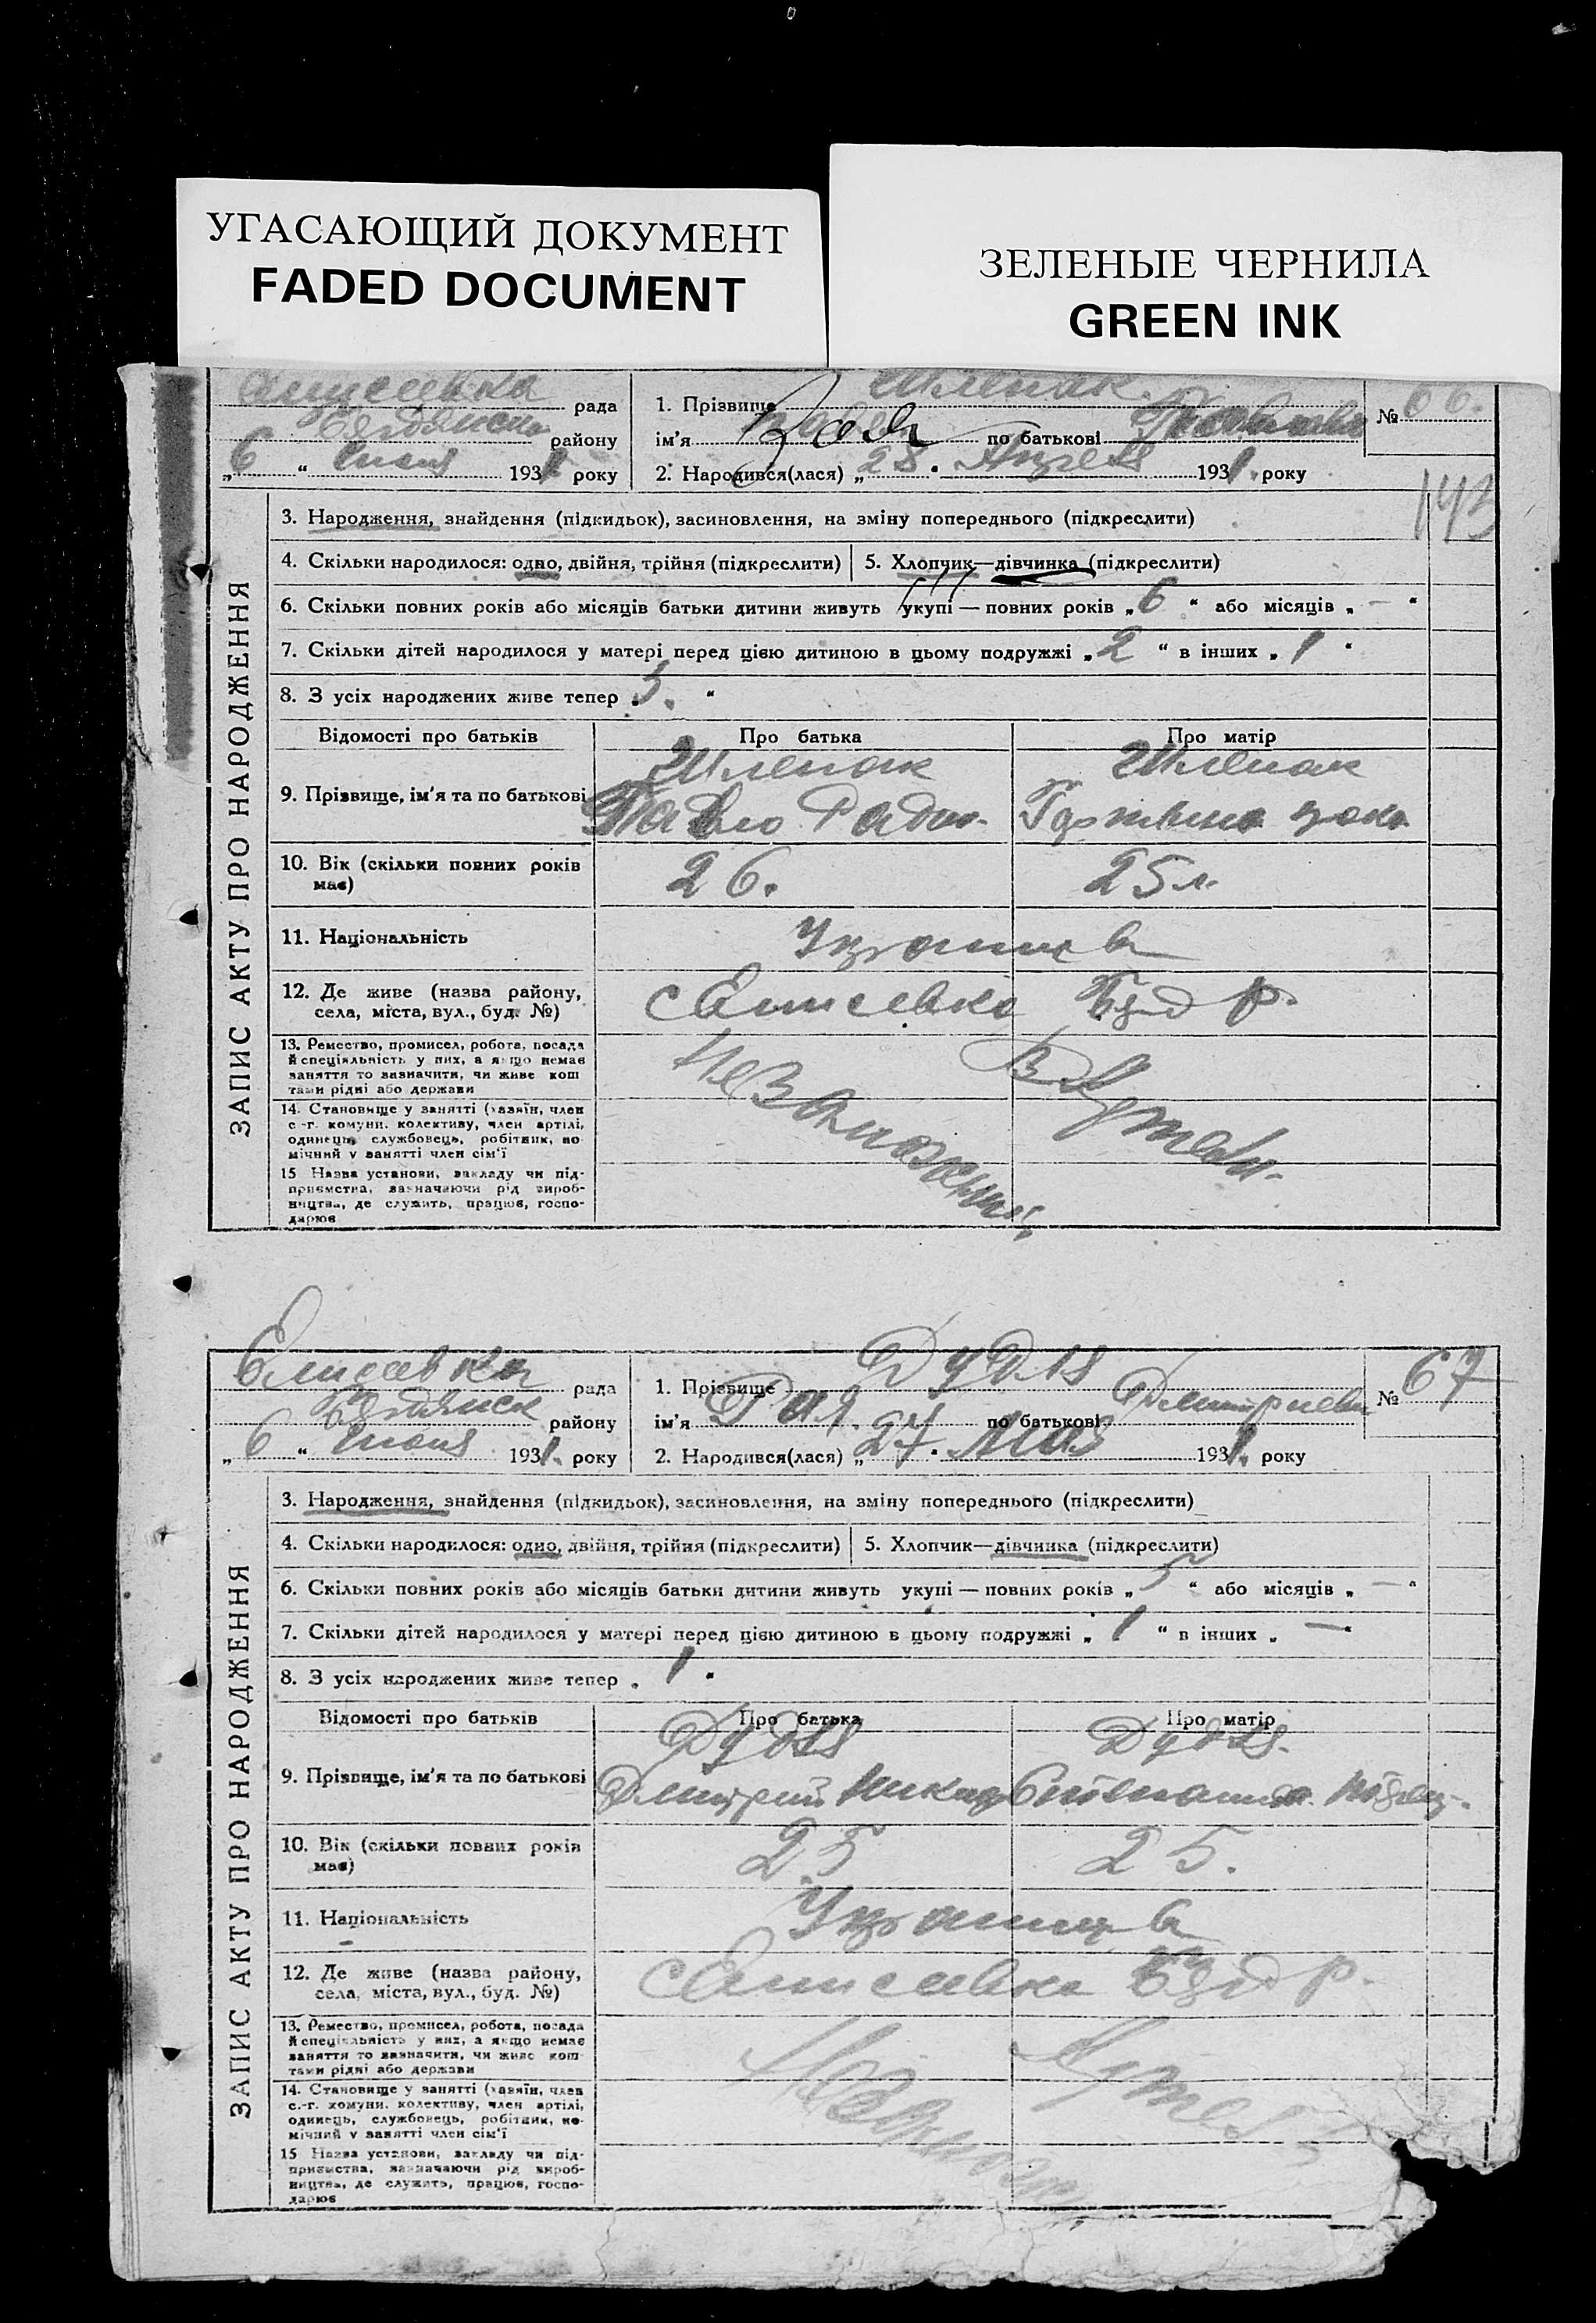 УГАСАЮЩИЙ ДОКУМЕНТ
FADED DOCUMENT
ЗЕЛЕНЫЕ ЧЕРНИЛА
GREEN INK
рада
району
„6“ июня 1931 року
1. Прізвище Шлепак.
ім'я Зоя по батькові
2. Народився(лася) „28“ Апреля 1931. року
№ 66.
143
ЗАПИС АКТУ ПРО НАРОДЖЕННЯ
3. Народження, знайдення (підкидьок), засиновлення, на зміну попереднього (підкреслити)
4. Скільки народилося: одно, двійня, трійня (підкреслити)
5. Хлопчик—дівчинка (підкреслити)
6. Скільки повних років або місяців батьки дитини живуть укупі — повних років „6“ або місяців „—“
7. Скільки дітей народилося у матері перед цією дитиною в цьому подружжі „2“ в інших „1“
8. З усіх народжених живе тепер „3.“
Відомості про батьків
Про батька
Про матір
9. Прізвище, ім'я та по батькові
Шлепак
Павло
Шлепак
10. Вік (скільки повних років має)
26.
25 л.
11. Національність
12. Де живе (назва району, села, міста, вул., буд. №)
с Елисеевка
р.
13. Ремество, промисел, робота, посада й спеціяльність у них, а якщо немає заняття то зазначити, чи живе коштами рідні або держави
14. Становище у занятті (хазяїн, член с.-г. комуни, колективу, член артілі, одинець, службовець, робітник, помічний у занятті член сім'ї
15 Назва установи, закладу чи підприємства, зазначаючи рід виробництва, де служить, працює, господарює
Елисеевка рада
району
„6“ июня 1931. року
1. Прізвище Дудля
ім'я Рая. по батькові
2. Народився(лася) „27“ Мая 1931. року
№ 67
ЗАПИС АКТУ ПРО НАРОДЖЕННЯ
3. Народження, знайдення (підкидьок), засиновлення, на зміну попереднього (підкреслити)
4. Скільки народилося: одно, двійня, трійня (підкреслити)
5. Хлопчик—дівчинка (підкреслити)
6. Скільки повних років або місяців батьки дитини живуть укупі — повних років „5“ або місяців „—“
7. Скільки дітей народилося у матері перед цією дитиною в цьому подружжі „1“ в інших „—“
8. З усіх народжених живе тепер „1“
Відомості про батьків
Про батька
Про матір
9. Прізвище, ім'я та по батькові
Дудля
Дмитрий
Дудля.
10. Вік (скільки повних років має)
25
25.
11. Національність
12. Де живе (назва району, села, міста, вул., буд. №)
с Елисеевка
р.
13. Ремество, промисел, робота, посада й спеціяльність у них, а якщо немає заняття то зазначити, чи живе коштами рідні або держави
14. Становище у занятті (хазяїн, член с.-г. комуни, колективу, член артілі, одинець, службовець, робітник, помічний у занятті член сім'ї
15 Назва установи, закладу чи підприємства, зазначаючи рід виробництва, де служить, працює, господарює